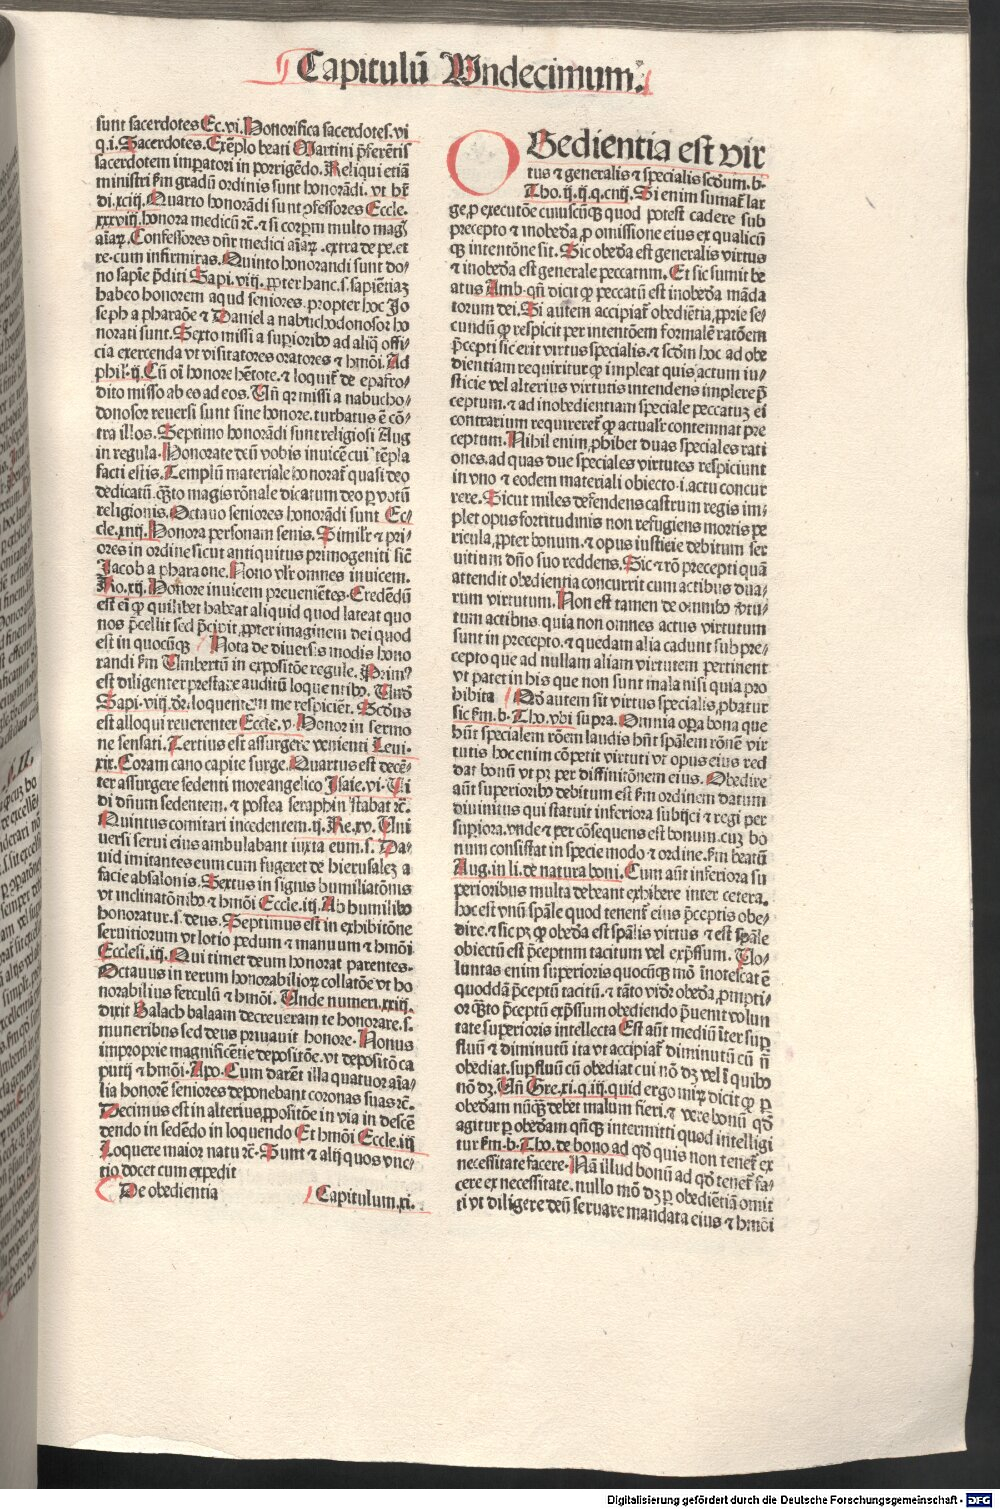 Capitulū Undecimum.
sunt sacerdotes Ec.vi. Honorifica sacerdotes. vi
q.i. Sacerdotes. Exēplo beati Martini p̄ferētis
sacerdotem imꝑatori in porrigēdo. Reliqui etiā
ministri ẜm gradū ordinis sunt honorādi. vt hr̄
di.xciij. Quarto honorādi sunt ꝓfessores Eccle.
xxxviij. honora medicū rc̄. ⁊ si corꝑm multo mag
aīaꝝ. Confessores dn̄r medici aīaꝝ. extra de pe. et
re. cum infirmitas. Quinto honorandi sunt do
no sapīe p̄diti Sapi. viij. ꝓpter hanc. s. sapiētiaꝫ
habeo honorem apud seniores. propter hoc Jo
seph a pharaōe ⁊ Daniel a nabuchodonosor ho
norati sunt. Sexto missi a suꝑiorib⁹ ad aliq̄ offi/
cia exercenda vt visitatores oratores ⁊ hmōi. Ad
phil. ij. Cū oī honore hētote. ⁊ loquit̄ de epafro/
dito misso ab eo ad eos. Un̄ qꝛ missi a nabucho/
donosor reuersi sunt sine honore. turbatus ē cō/
tra illos. Septimo honorādi sunt religiosi Aug
in regula. Honorate deū vobis inuicē cui⁹ tēpla
facti estis. Templū materiale honorat̄ quasi deo
dedicatū. q̄to magis rōnale dicatum deo ꝑ votū
religionis. Octauo seniores honorādi sunt Ec/
cle. xiiij. Honora personam senis. Similr̄ ⁊ pri/
ores in ordine sicut antiquitus primogeniti sic̄
Jacob a pharaone. Nono vlr̄ omnes inuicem.
Ro. xij. Honore inuicem preuenīētes. Credēdū
est eī ꝙ quilibet habeat aliquid quod lateat quo
nos p̄cellit sed p̄cipit. ꝓpter imaginem dei quod
est in quocūqꝫ Nota de diuersis modis hono
randi ẜm Umbertū in expositōe regule. Prim⁹
est diligenter prestare auditū loquentib⁹. Und̄
Sapi. viij. dr̄. loquentem me respiciēt. Scd̄us
est alloqui reuerenter Eccle. v. Honor in sermo
ne sensati. Tertius est assurgere venienti Leui.
xix. Coram cano capite surge. Quartus est decē/
ter assurgere sedenti more angelico Isaie. vi. Ui
di dn̄um sedentem. ⁊ postea seraphin stabāt rc̄.
Quintus comitari incedentem. ij. Re. xv. Uni
uersi serui eius ambulabant iuxta eum. s. Da/
uid imitantes eum cum fugeret de hierusaleꝫ a
facie absalonis. Sextus in signis humiliatōnis
vt inclinatōnib⁹ ⁊ hmōi Eccle. iij. Ab humilib⁹
honoratur. s. deus. Septimus est in exhibitōne
seruitiorum vt lotio pedum ⁊ manuum ⁊ hmōi
Ecclesi. iij. Qui timet deum honorat parentes.
Octauus in rerum honorabilioꝝ collatōe vt ho
norabilius ferculū ⁊ hmōi. Unde numeri. xxiij.
dixit Balach balaam decreueram te honorare. s.
muneribus sed deus priuauit honore. Nonus
improprie magnificētie depositōe. vt depositō ca
putij ⁊ hmōi. Apo. Cum darēt illa quatuor aīa/
lia honorē seniores deponebant coronas suas rc̄.
Decimus est in alterius ꝓpositōe in via in descē
dendo in sedēdo in loquendo Et hmōi Eccle. iij
Loquere maior natu rc̄. Sunt ⁊ alij quos vnc/
tio docet cum expedit
De obedientia Capitulum. xi.
OBedientia est vir
tus ⁊ generalis ⁊ specialis scd̄um. b.
Tho. ij. ij. q. ciiij. Si enim sumat̄ lar
ge, ꝑ executōe cuiuscūqꝫ quod potest cadere sub
precepto ⁊ inobed̄a, ꝑ omissione eius ex qualicū
qꝫ intentōne sit. Sic obed̄a est generalis virtus
⁊ inobed̄a est generale peccatum. Et sic sumit be
atus Amb. qn̄ dicit ꝙ peccatū est inobed̄a māda
torum dei. Si autem accipiat̄ obediētia, ꝓprie se/
cundū ꝙ respicit per intentōem formalē ratōem
p̄cepti sic erit virtus specialis. ⁊ scd̄m hoc ad obe
dientiam requiritur ꝙ impleat quis actum iu/
sticie vel alterius virtutis intendens implere p̄
ceptum. ⁊ ad inobedientiam speciale peccatuꝫ ei
contrarium requireret̄ ꝙ actualr̄ contemnat pre
ceptum. Nihil enim, ꝓhibet duas speciales rati
ones. ad quas due speciales virtutes respiciunt
in vno ⁊ eodem materiali obiecto. i. actu concur
rere. Sicut miles defendens castrum regis im/
plet opus fortitudinis non refugiens mortis pe
ricula, ꝓpter bonum. ⁊ opus iusticie debitum ser
uitium dn̄o suo reddens. Sic ⁊ rō precepti quā
attendit obedientia concurrit cum actibus dua/
rum virtutum. Non est tamen de omnib⁹ v̄tu/
tum actibus. quia non omnes actus virtutum
sunt in precepto. ⁊ quedam alia cadunt sub pre/
cepto que ad nullam aliam virtutem pertinent
vt patet in his que non sunt mala nisi quia pro
hibita Qd̄ autem sit virtus specialis, ꝓbatur
sic ẜm. b. Tho. vbi supra. Omnia oꝑa bona que
hn̄t specialem rōem laudis hn̄t spālem rōnē vir
tutis hoc enim cōpetit virtuti vt opus eius red
dat bonū vt pꝫ per diffinitōnem eius. Obedire
aūt superiorib⁹ debitum est ẜm ordinem datum
diuinitus qui statuit inferiora subijci ⁊ regi per
suꝑiora. vnde ⁊ per cōsequens est bonum. cuꝫ bo
num consistat in specie modo ⁊ ordine. ẜm beatū
Aug. in li. de natura boni. Cum aūt inferiora su
perioribus multa debeant exhibere inter cetera.
hoc est vnū spāle quod tenent̄ eius p̄ceptis obe/
dire. ⁊ sic pꝫ ꝙ obed̄a est spālis virtus ⁊ est spāle
obiectū est p̄ceptum tacitum vel exp̄ssum. Uo/
luntas enim superioris quocūqꝫ mō īnotescat ē
quoddā p̄ceptū tacitū. ⁊ tāto vid̄r obed̄a, ꝓmpti/
or q̄to p̄ceptū exp̄ssum obediendo p̄uenit volun
tate superioris intellecta Est aūt mediū īter suꝑ
fluū ⁊ diminutū ita vt accipiat̄ diminutū cū n̄
obediat. suꝑfluū cū obediat cui nō dꝫ vel ī quib⁹
nō dꝫ. Un̄ Gre. xi. q. iij. quid ergo miꝝ dicit ꝙ ꝑ
obed̄am nūqꝫ debet malum fieri. ⁊ vere bonū qd̄
agitur ꝑ obed̄am qn̄qꝫ intermitti quod intelligi
tur ẜm. b. Tho. de bono ad qd̄ quis non tenet̄ ex
necessitate facere. Nā illud bonū ad qd̄ tenet̄ fa/
cere ex necessitate. nullo mō dꝫ ꝑ obediētiā omit
ti vt diligere deū seruare mandata eius ⁊ hmōi
Digitalisierung gefördert durch die Deutsche Forschungsgemeinschaft - DFG